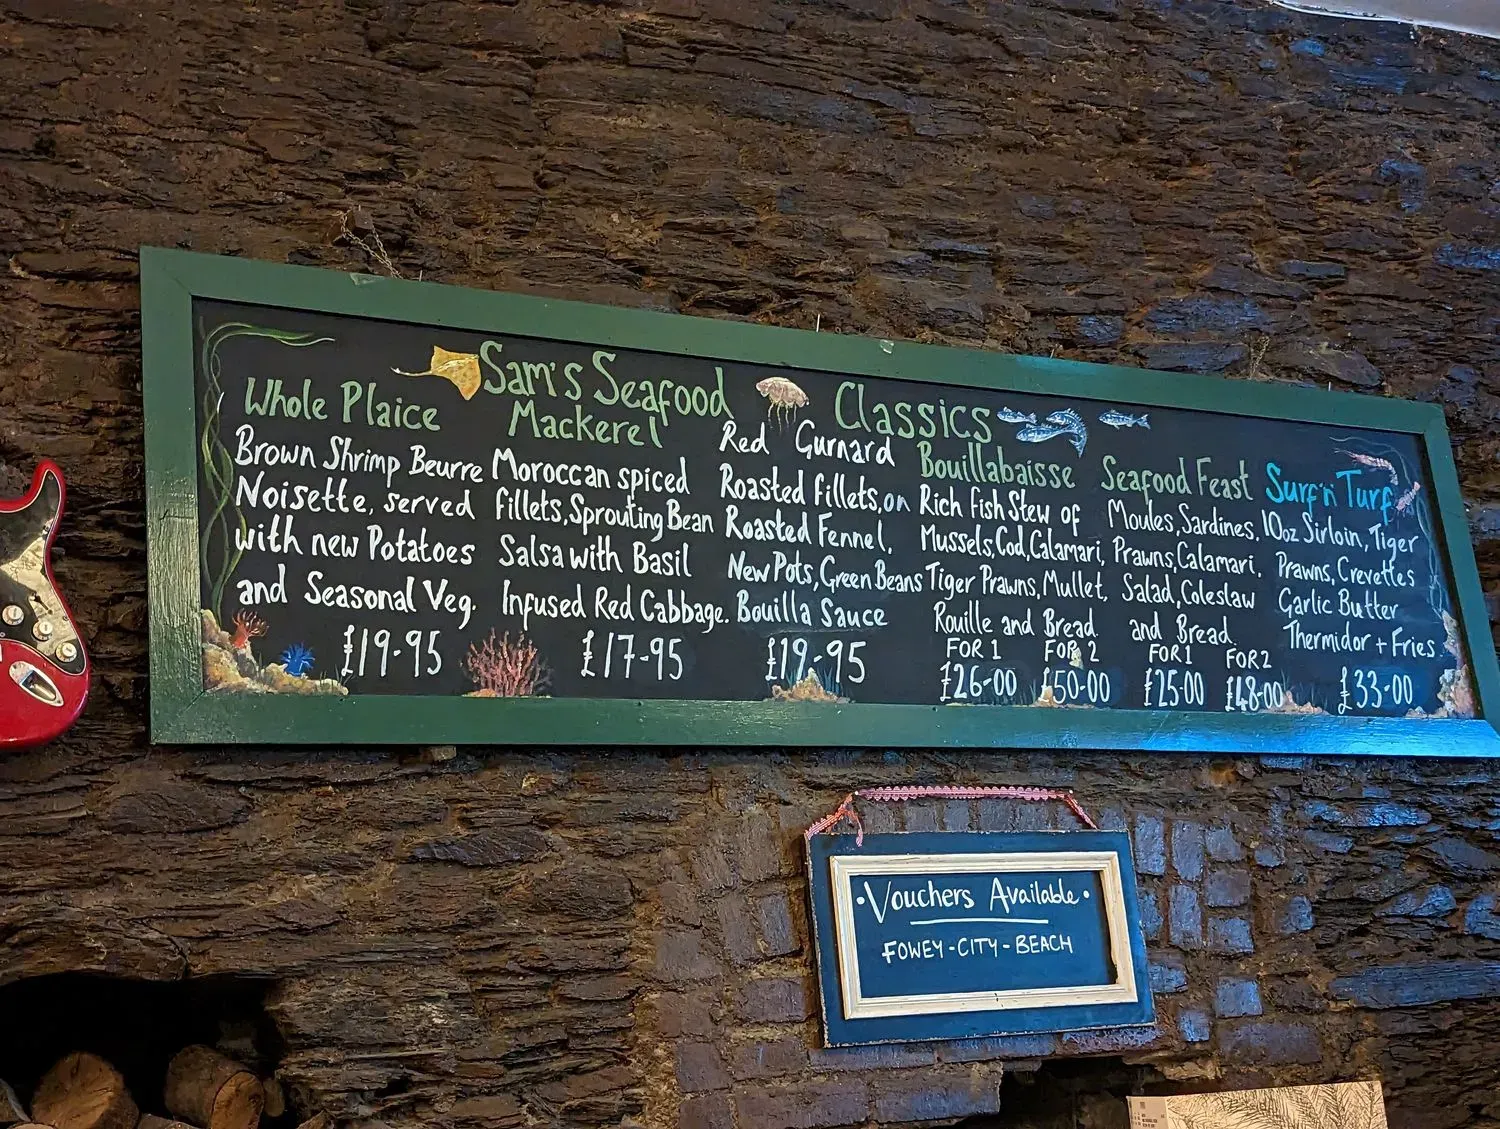 Sam's Seafood Classics
Whole Plaice
Brown Shrimp Beurre
Noisette, served
with new Potatoes
and Seasonal Veg.
£19-95
Mackerel
Moroccan spiced
fillets, Sprouting Bean
Salsa with Basil
Infused Red Cabbage.
£17-95
Red Gurnard
Roasted fillets, on
Roasted Fennel,
New Pots, Green Beans
Bouilla Sauce
£19-95
Bouillabaisse
Rich Fish Stew of
Mussels, Cod, Calamari,
Tiger Prawns, Mullet,
Rouille and Bread
FOR 1 FOR 2
£26-00 £50-00
Seafood Feast
Moules, Sardines,
Prawns, Calamari,
Salad, Coleslaw
and Bread.
FOR 1 FOR 2
£25-00 £48-00
Surf'n Turf
10oz Sirloin, Tiger
Prawns, Crevettes
Garlic Butter
Thermidor + Fries.
£33-00
• Vouchers Available •
FOWEY - CITY - BEACH